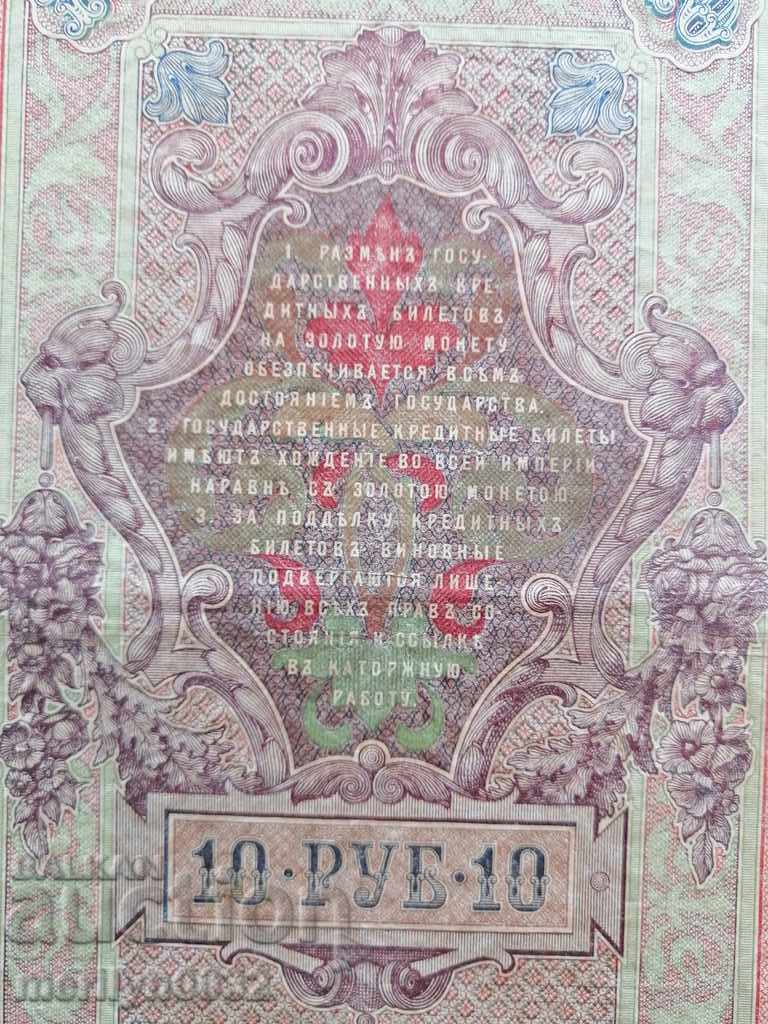 1. РАЗМѢНЪ ГОСУ-
ДАРСТВЕННЫХЪ КРЕ-
ДИТНЫХЪ БИЛЕТОВЪ
НА ЗОЛОТУЮ МОНЕТУ
ОБЕЗПЕЧИВАЕТСЯ ВСѢМЪ
ДОСТОЯНІЕМЪ ГОСУДАРСТВА.
2. ГОСУДАРСТВЕННЫЕ КРЕДИТНЫЕ БИЛЕТЫ
ИМѢЮТЪ ХОЖДЕНІЕ ВО ВСЕЙ ИМПЕРІИ
НАРАВНѢ СЪ ЗОЛОТОЮ МОНЕТОЮ.
3. ЗА ПОДДѢЛКУ КРЕДИТНЫХЪ
БИЛЕТОВЪ ВИНОВНЫЕ
ПОДВЕРГАЮТСЯ ЛИШЕ-
НІЮ ВСѢХЪ ПРАВЪ СО-
СТОЯНІЯ И ССЫЛКѢ
ВЪ КАТОРЖНУЮ
РАБОТУ.
10 · РУБ · 10
BALKAN
auction
merilyn0632